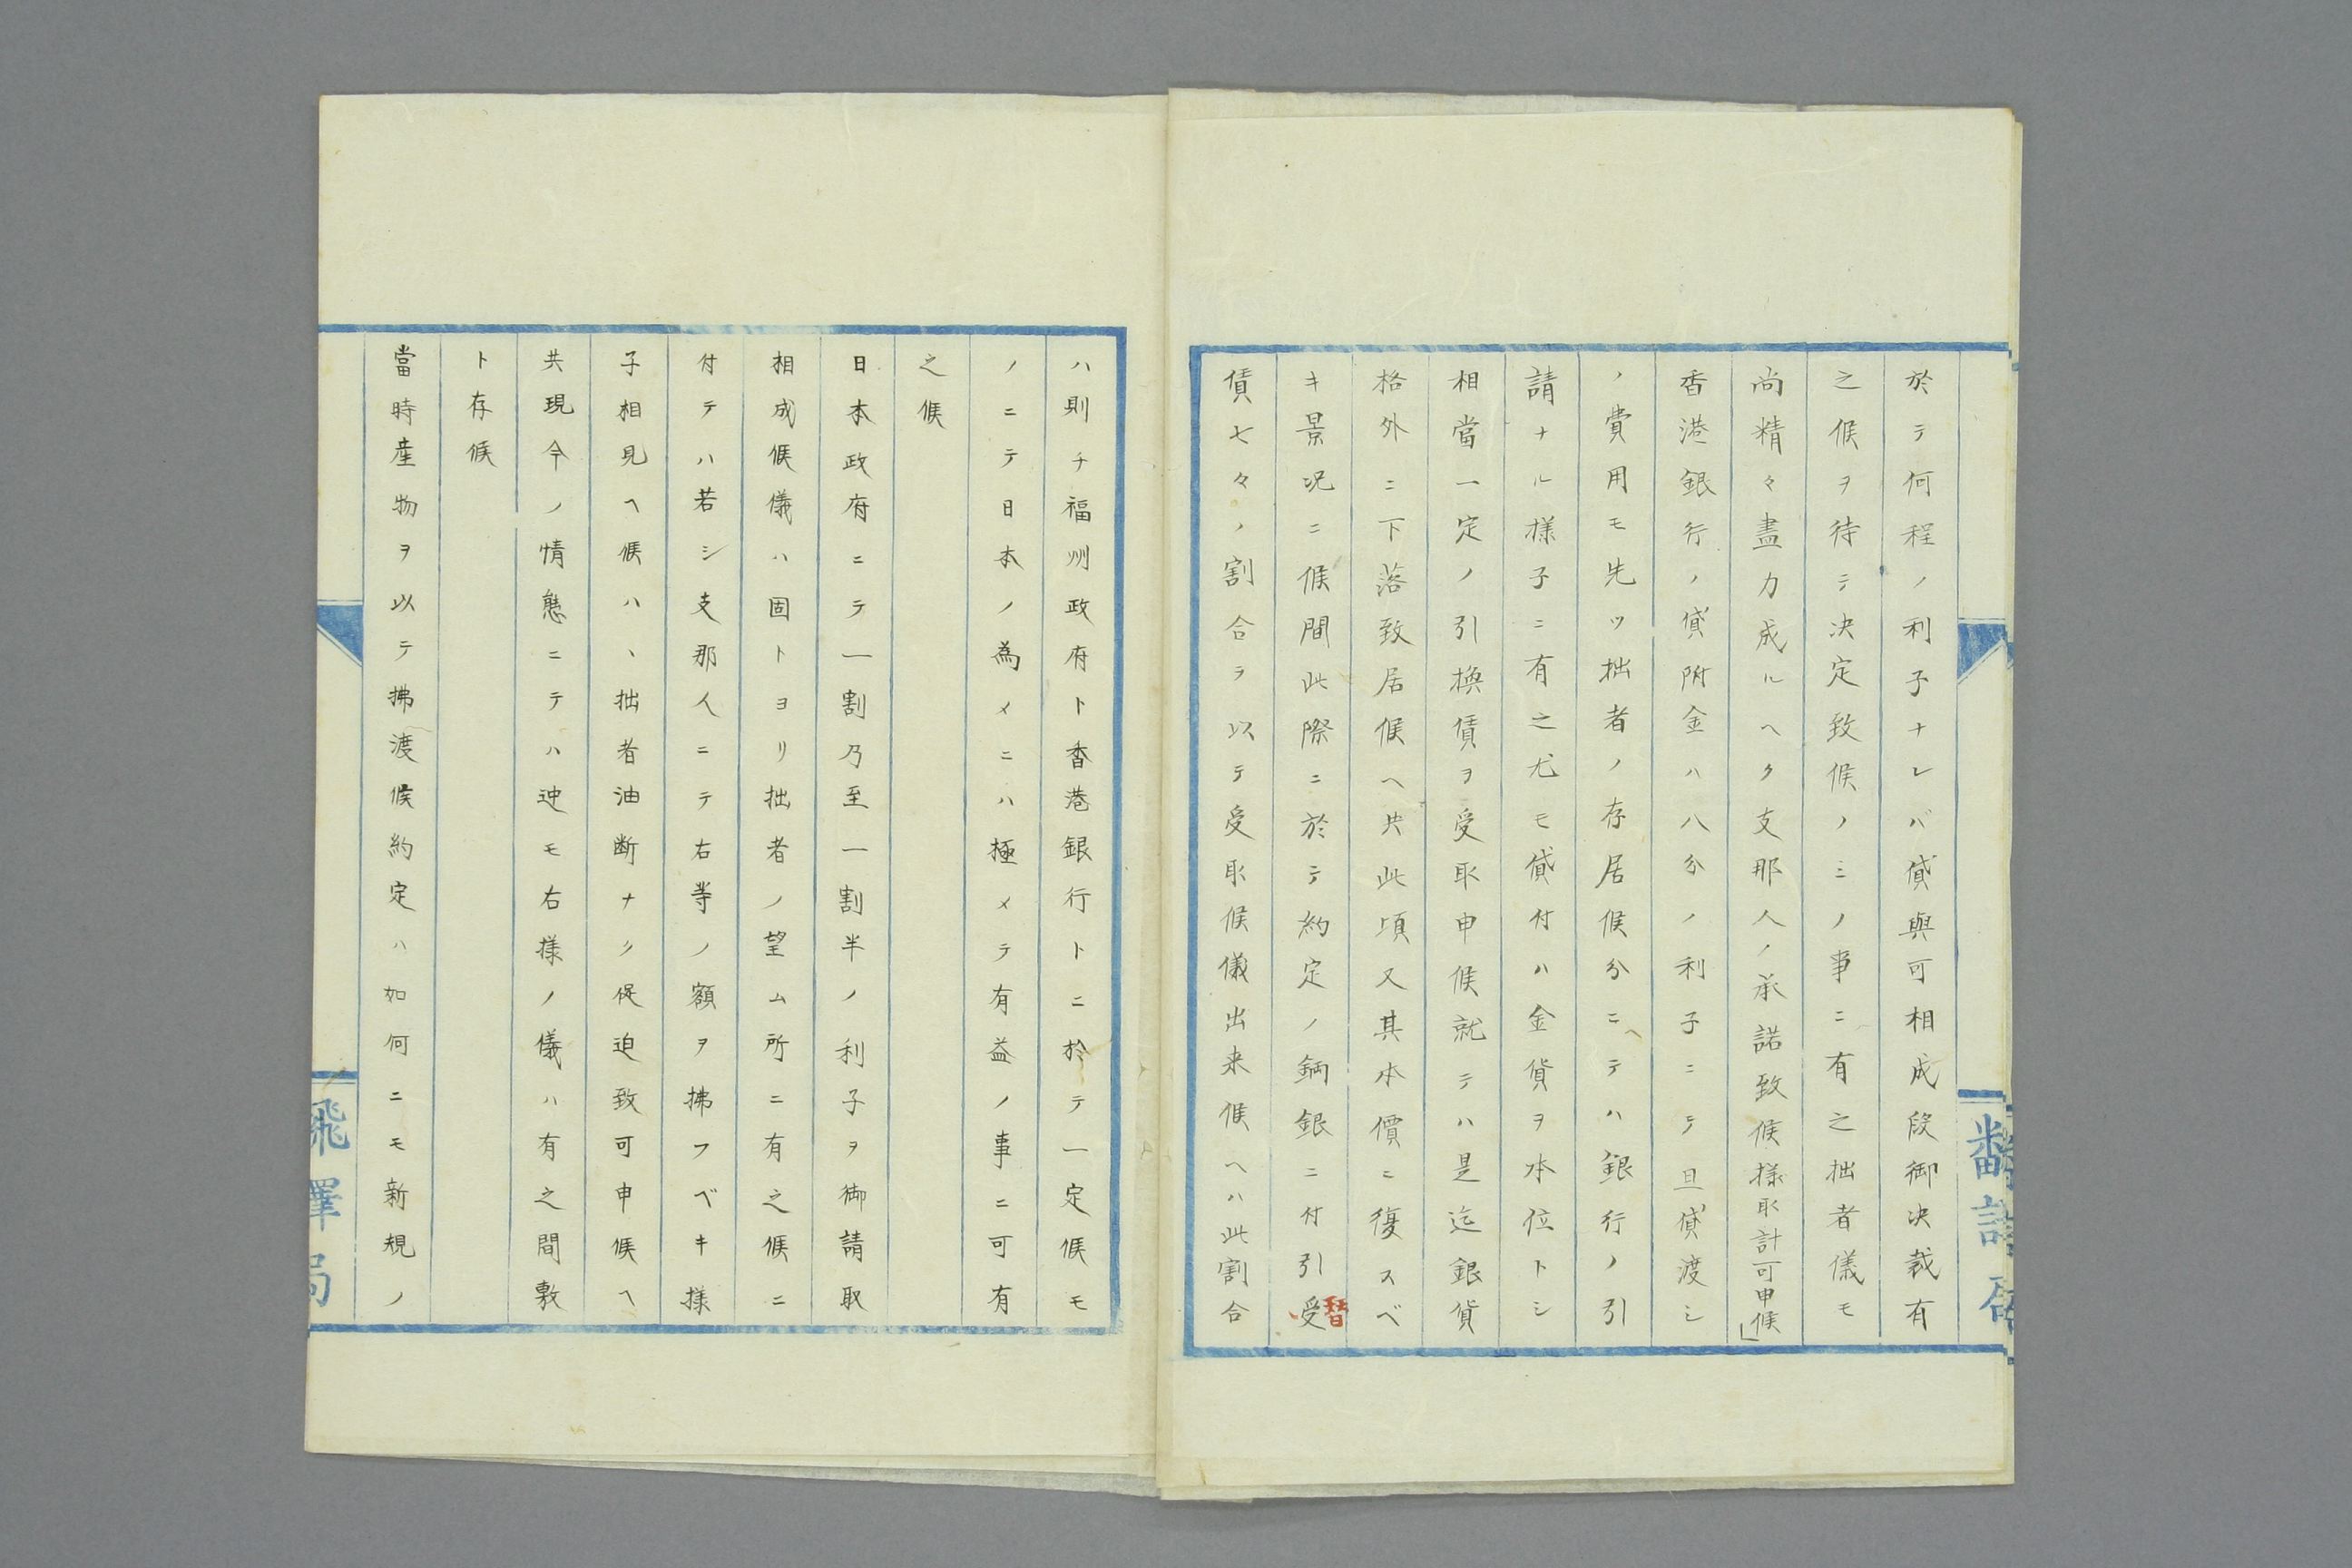 於テ何程ノ利子ナレバ貸與可相成段御决裁有
之候ヲ待テ决定致候ノミノ事ニ有之拙者儀モ
尚精々盡力成ルヘク支那人ノ承諾致候様取計可申候」
香港銀行ノ貸附金ハ八分ノ利子ニテ且貸渡シ
ノ費用モ先ツ拙者ノ存居候分ニテハ銀行ノ引
請ナル様子ニ有之尤モ貸付ハ金貨ヲ本位トシ
相當一定ノ引換賃ヲ受取申候就テハ是迄銀貨
格外ニ下落致居候ヘ共此頃又其本價ニ復スベ
キ景况ニ候間此際ニ於テ約定ノ節銀ニ付引受
賃七々ノ割合ヲ以テ受取候儀出来候ヘハ此割合
ハ則チ福州政府ト香港銀行トニ於テ一定候モ
ノニテ日本ノ為メニハ極メテ有益ノ事ニ可有
之候
日本政府ニテ一割乃至一割半ノ利子ヲ御請取
相成候儀ハ固トヨリ拙者ノ望ム所ニ有之候ニ
付テハ若シ支那人ニテ右等ノ額ヲ拂フベキ様
子相見ヘ候ハヽ拙者油断ナク促迫致可申候ヘ
共現今ノ情態ニテハ迚モ右様ノ儀ハ有之間敷
ト存候
當時産物ヲ以テ拂渡候約定ハ如何ニモ新規ノ
飜譯局